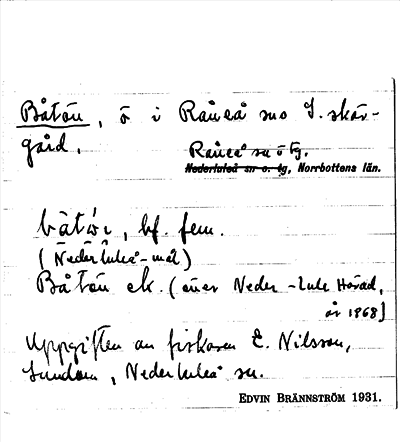 Båtön, ö i Råneå sns S. skär-
gård.
Råneå sn o tg.
Nederluleå sn o. tg, Norrbottens län.
bf. fem.
(Nederluleå-mål)
Båtön ek. (över Neder-Lule Härad,
år 1868)
Uppgiften av fiskaren E. Nilsson,
Sundom, Nederluleå sn.
EDVIN BRÄNNSTRÖM 1931.